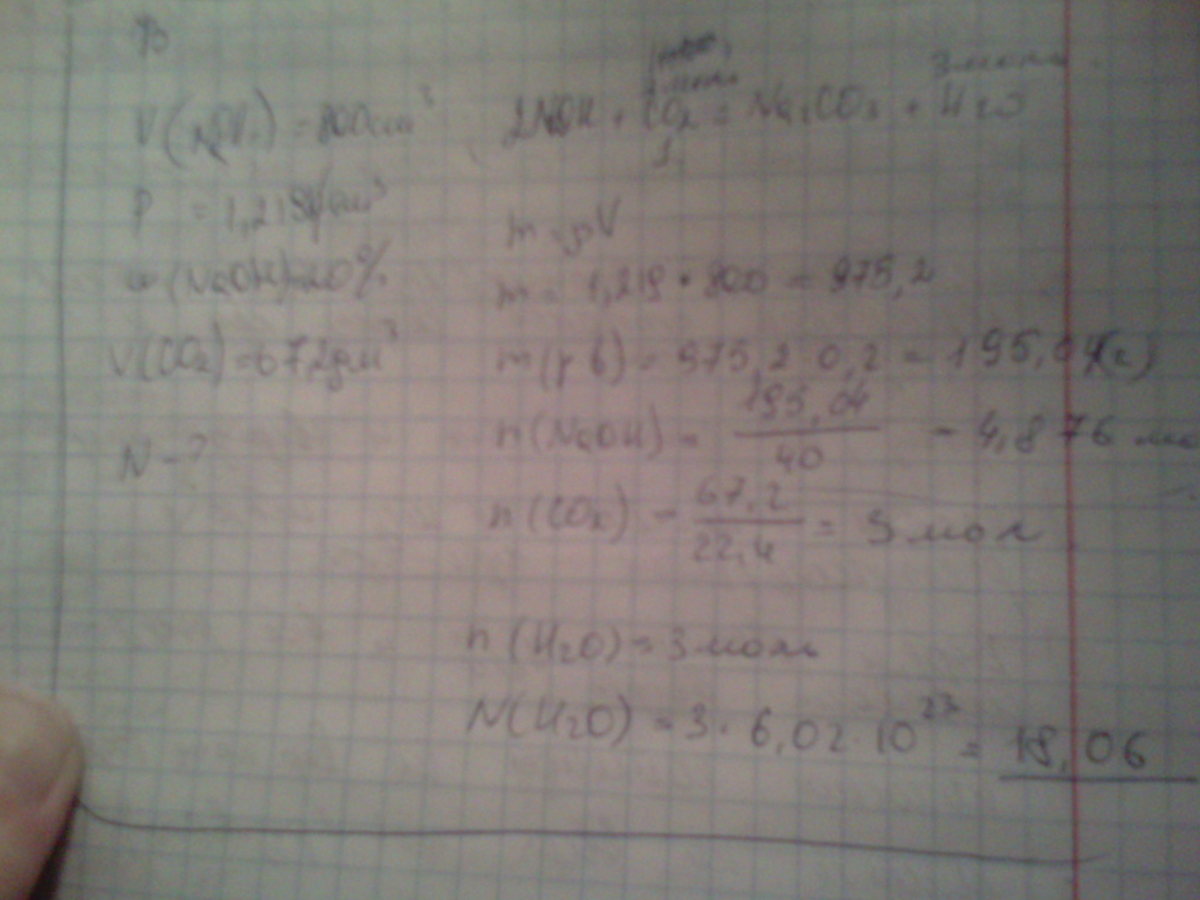 V( ) = 800см³
ρ = 1,219г/см³
ω(NaOH)=20%
V(CO₂)=67,2дм³
N-?
3 моль
2NaOH + CO₂ = Na₂CO₃ + H₂O
1
m = ρV
m = 1,219 · 800 = 975,2
m(р в) = 975,2 0,2 = 195,04(г)
n(NaOH) = 195,04/40 = 4,876 мо
n(CO₂) = 67,2/22,4 = 3 мол
n(H₂O) = 3 моль
N(H₂O) = 3 · 6,02 · 10²³ = 18,06